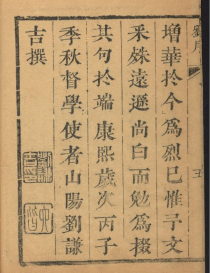 增華於今爲烈已惟予文
采殊遠遜尚白而勉爲掇
其句於端康熙歲次丙子
季秋督學使者山陽劉謙
吉撰
五